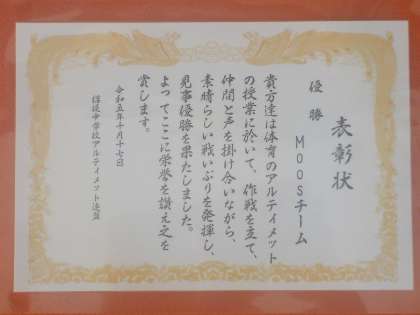 表彰状
優勝
Moosチーム
貴方達は体育のアルティメット
の授業に於いて、作戦を立て、
仲間と声を掛け合いながら、
素晴らしい戦いぶりを発揮し、
見事優勝を果たしました。
よってここに栄誉を讃え之を
賞します。
令和五年十月十七日
中学校アルティメット連盟